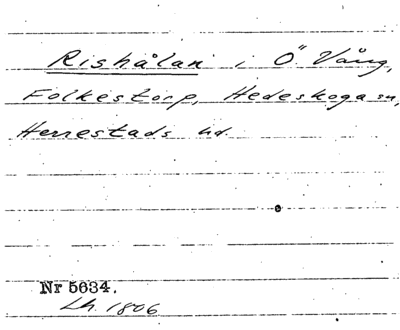 Rishålan i Ö. Vång,
Folkestorp, Hedeskoga sn,
Herrestads hd.
Nr 5634.
Lh. 1806